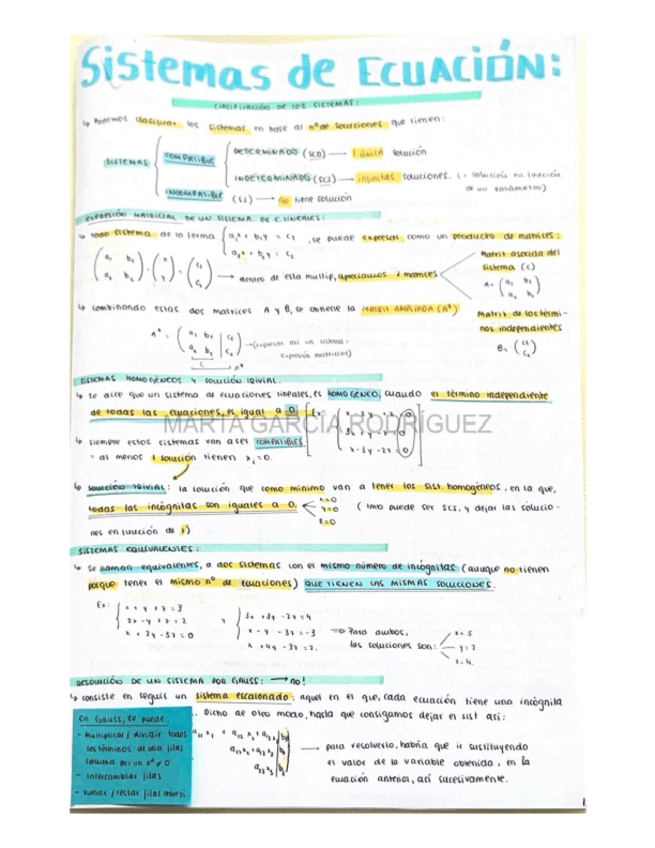 Sistemas de ECUACIÓN:
CLASIFICACIÓN DE LOS SISTEMAS:
↳ Podemos clasificar los sistemas en base al nº de soluciones que tienen:
SISTEMAS
COMPATIBLE
DETERMINADO (SCD) → 1 única solución
INDETERMINADO (SCI) → infinitas soluciones. (= solución en función
de un parámetro)
INCOMPATIBLE (SI) → no tiene solución
EXPRESIÓN MATRICIAL DE UN SISTEMA DE E. LINEALES:
↳ Todo sistema de la forma { a₁x + b₁y = c₁ , se puede expresar como un producto de matrices:
a₂x + b₂y = c₂
(a₁ b₁ · (x = (c₁
a₂ b₂) y) c₂) → dentro de esta multip, apreciamos 2 matrices
Matriz asociada del
sistema (C)
A = (a₁ b₁
a₂ b₂)
Matriz de los térmi-
nos independientes
B = (c₁
c₂)
↳ combinando estas dos matrices A y B, se obtiene la MATRIZ AMPLIADA (A*)
A* = (a₁ b₁ | c₁
a₂ b₂ | c₂) → (expresar así un sistema:
expresión matricial)
C A*
SISTEMAS HOMOGÉNEOS Y SOLUCIÓN TRIVIAL.
↳ se dice que un sistema de ecuaciones lineales, es HOMOGÉNEO, cuando el término independiente
de todas las ecuaciones, es igual a 0.
MARTA GARCÍA RODRÍGUEZ
x - 3y - 2z = 0
↳ siempre estos sistemas van a ser COMPATIBLES
= al menos 1 solución tienen xᵢ = 0.
↳ SOLUCIÓN TRIVIAL: la solución que como mínimo van a tener los sist. homogéneos, en la que,
todas las incógnitas son iguales a 0. x=0
y=0
z=0
(Pero puede ser SCI, y dejar las solucio-
nes en función de λ)
SISTEMAS EQUIVALENTES:
↳ se llaman equivalentes, a dos sistemas con el mismo número de incógnitas (aunque no tienen
porque tener el mismo nº de ecuaciones) QUE TIENEN LAS MISMAS SOLUCIONES.
Ex: { x + y + z = 3
2x - y + z = 2
x + 2y - 3z = 0
y
{ 3x + 3y - 2z = 4
x - y - 3z = -3
x + 4y - 3z = 2.
⇒ Para ambos,
las soluciones son:
x = 5
y = 2
z = 4.
RESOLUCIÓN DE UN SISTEMA POR GAUSS: → no!
↳ consiste en seguir un sistema escalonado: aquel en el que, cada ecuación tiene una incógnita
... Dicho de otro modo, hasta que consigamos dejar el sist así:
En Gauss, se puede:
- multiplicar / dividir todos
los términos de una fila/
columna por un nº ≠ 0
- intercambiar filas
- sumar / restar filas
a₁₁x₁ + a₁₂x₂ + a₁₃x₃ | b₁
a₂₂x₂ + a₂₃x₃ | b₂
a₃₃x₃ | b₃
→ para resolverlo, habría que ir sustituyendo
el valor de la variable obtenida, en la
ecuación anterior, así sucesivamente.